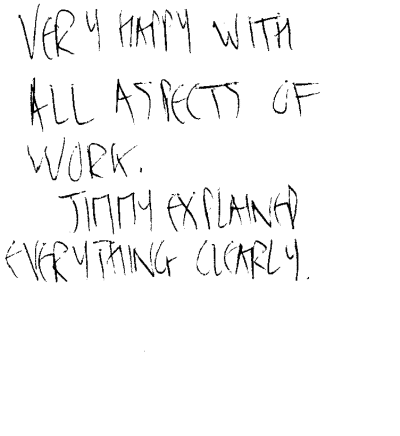 VERY HAPPY WITH
ALL ASPECTS OF
WORK.
JIMMY EXPLAINED
EVERYTHING CLEARLY.